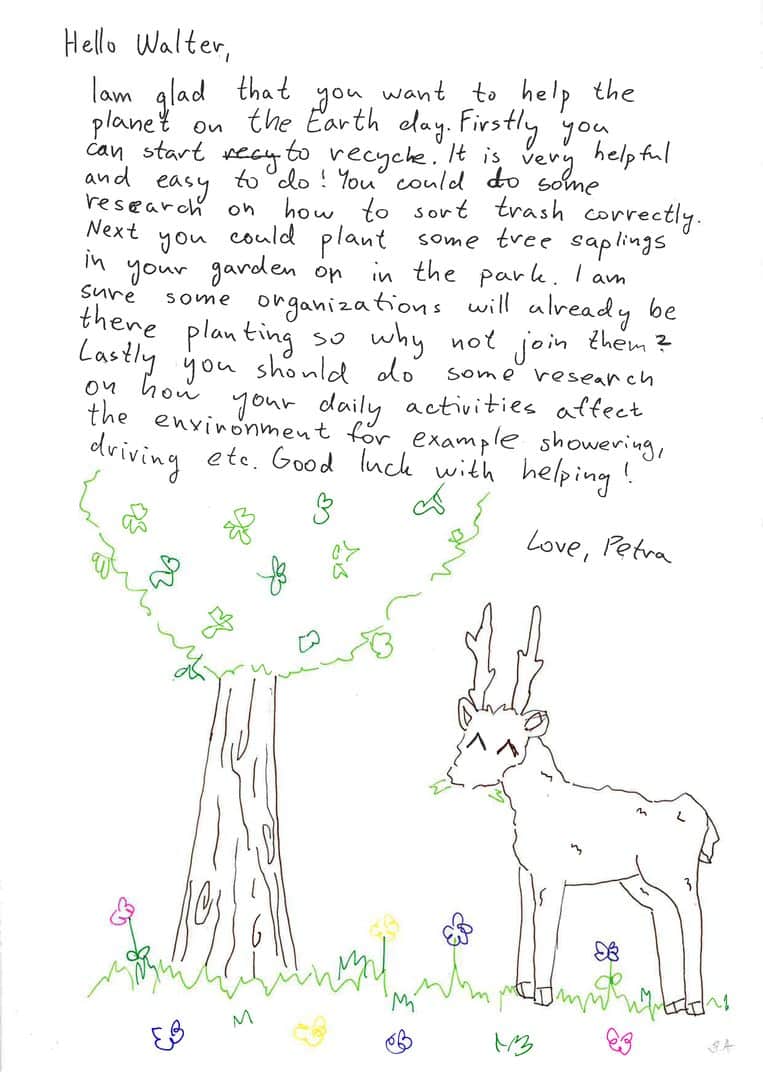 Hello Walter,
I am glad that you want to help the
planet on the Earth day. Firstly you
can start recy to recycle. It is very helpful
and easy to do! You could do some
research on how to sort trash correctly.
Next you could plant some tree saplings
in your garden or in the park. I am
sure some organizations will already be
there planting so why not join them?
Lastly you should do some research
on how your daily activities affect
the environment for example showering,
driving etc. Good luck with helping!
Love, Petra
S.A